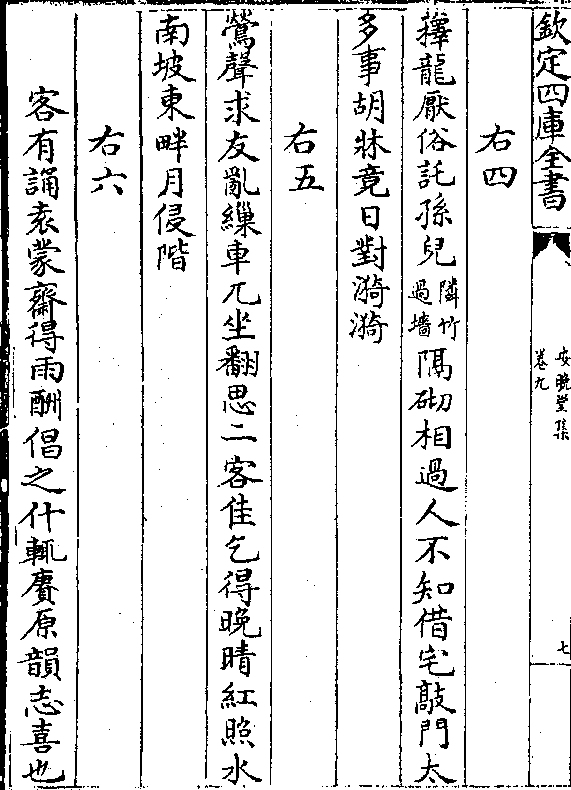 欽定四庫全書
安晚堂集
卷九
七
右四
籜龍厭俗託孫兒隣竹過墻隔砌相過人不知借宅敲門太
多事胡牀竟日對漪漪
右五
鶯聲求友亂繅車兀坐翻思二客佳乞得晚晴紅照水
南坡東畔月侵階
右六
客有誦袁蒙齋得雨酬倡之什輒賡原韻志喜也